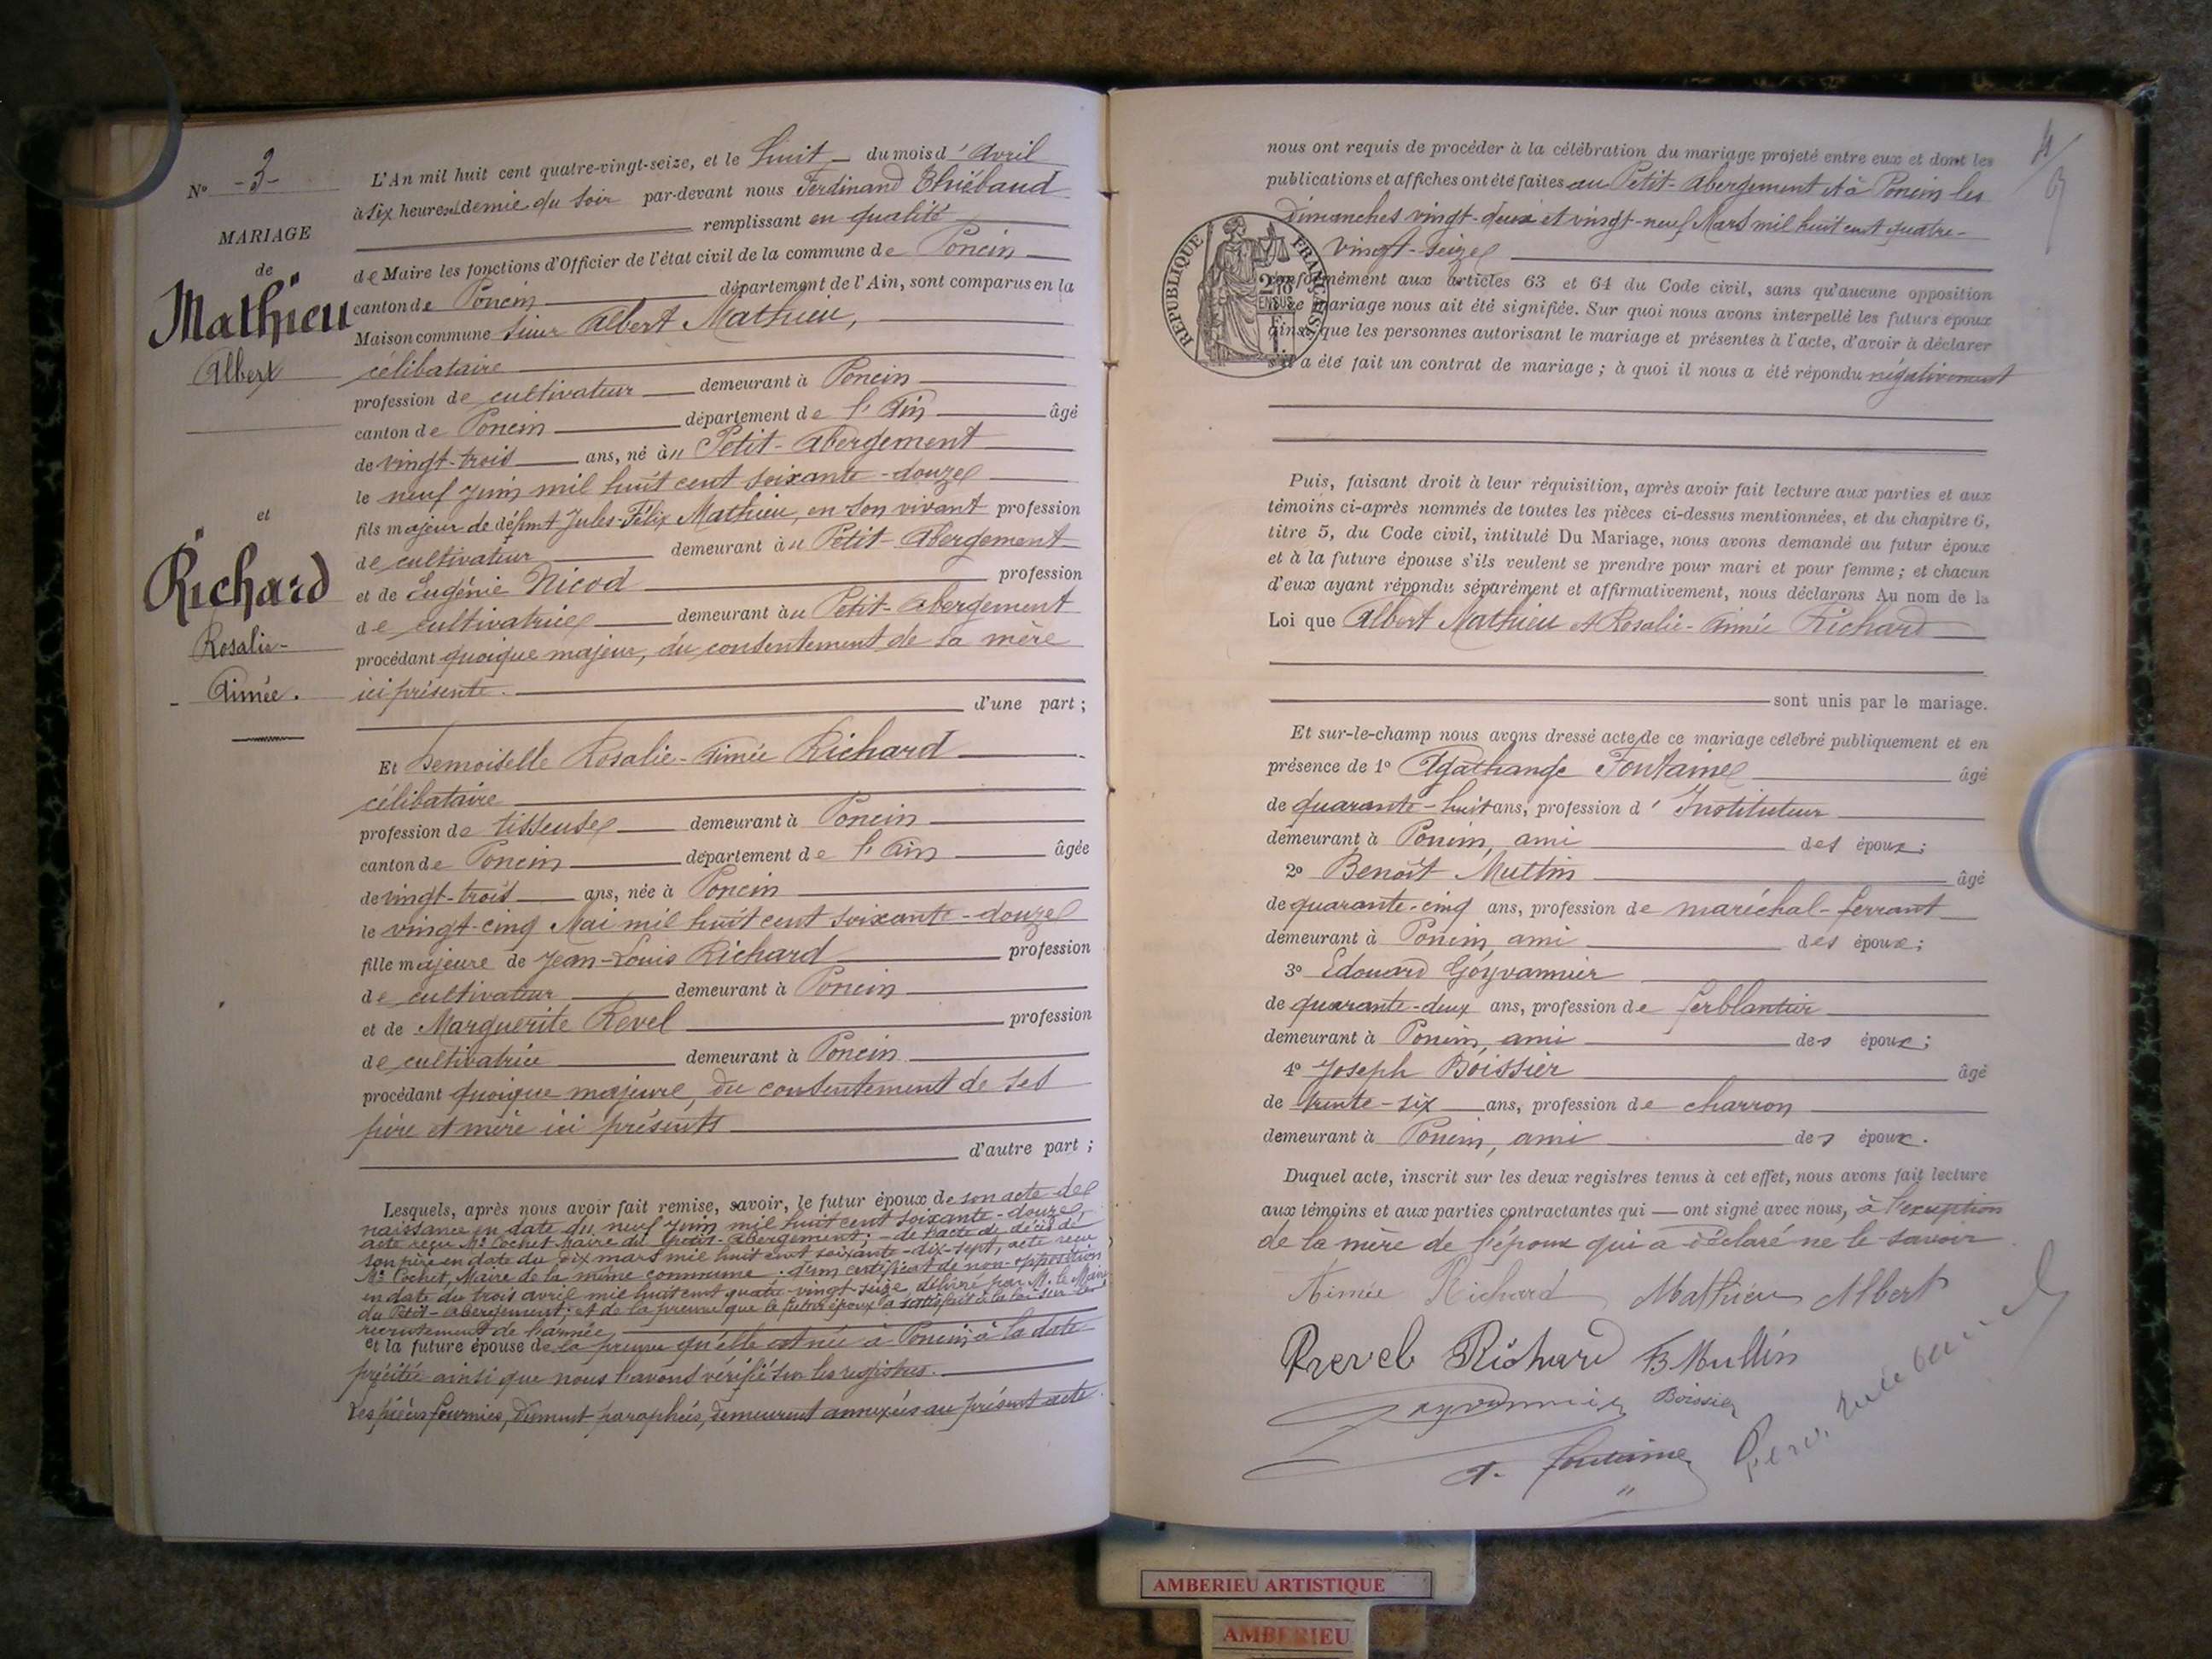 N° -3-
MARIAGE
de
Mathieu
Albert
et
Richard
Rosalie-
Aimée.
L'An mil huit cent quatre-vingt-seize, et le huit du mois d'avril
à six heures et demie du soir par-devant nous Ferdinand Thiébaud
remplissant en qualité
de Maire les fonctions d'Officier de l'état civil de la commune de Poncin
canton de Poncin département de l'Ain, sont comparus en la
Maison commune sieur Albert Mathieu,
célibataire
profession de cultivateur demeurant à Poncin
canton de Poncin département de l'Ain âgé
de vingt-trois ans, né au Petit-Abergement
le neuf Juin mil huit cent soixante-douze
fils majeur de défunt Jules-Félix Mathieu, en son vivant profession
de cultivateur demeurant au Petit-Abergement
et de Eugénie Nicod profession
de cultivatrice demeurant au Petit-Abergement
procédant quoique majeur, du consentement de sa mère
ici présente.
d'une part ;
Et Demoiselle Rosalie-Aimée Richard
célibataire
profession de tisseuse demeurant à Poncin
canton de Poncin département de l'Ain âgée
de vingt-trois ans, née à Poncin
le vingt-cinq Mai mil huit cent soixante-douze
fille majeure de Jean-Louis Richard profession
de cultivateur demeurant à Poncin
et de Marguerite Revel profession
de cultivatrice demeurant à Poncin
procédant quoique majeure, du consentement de ses
père et mère ici présents
d'autre part ;
Lesquels, après nous avoir fait remise, savoir, le futur époux de son acte de
naissance en date du neuf Juin mil huit cent soixante-douze,
acte reçu Mr Cochet Maire du Petit-Abergement ; - de l'acte de décès de
son père en date du dix mars mil huit cent soixante-dix-sept, acte reçu
Mr Cochet, Maire de la même commune. d'un certificat de non-opposition
en date du trois avril mil huit cent quatre-vingt-seize délivré par M. le Maire
du Petit-Abergement ; et de la preuve que le futur époux a satisfait à la loi sur le
recrutement de l'armée
et la future épouse de la preuve qu'elle est née à Poncin, à la date
précitée ainsi que nous l'avons vérifié sur les registres.
Les pièces fournies, dûment paraphées, demeurent annexées au présent acte
4
nous ont requis de procéder à la célébration du mariage projeté entre eux et dont les
publications et affiches ont été faites au Petit-Abergement et à Poncin les
dimanches vingt-deux et vingt-neuf Mars mil huit cent quatre-
vingt-seize
conformément aux articles 63 et 64 du Code civil, sans qu'aucune opposition
mariage nous ait été signifiée. Sur quoi nous avons interpellé les futurs époux
ainsi que les personnes autorisant le mariage et présentes à l'acte, d'avoir à déclarer
s'il a été fait un contrat de mariage ; à quoi il nous a été répondu négativement
REPUBLIQUE FRANÇAISE
Puis, faisant droit à leur réquisition, après avoir fait lecture aux parties et aux
témoins ci-après nommés de toutes les pièces ci-dessus mentionnées, et du chapitre 6,
titre 5, du Code civil, intitulé Du Mariage, nous avons demandé au futur époux
et à la future épouse s'ils veulent se prendre pour mari et pour femme ; et chacun
d'eux ayant répondu séparément et affirmativement, nous déclarons Au nom de la
Loi que Albert Mathieu et Rosalie-Aimée Richard
sont unis par le mariage.
Et sur-le-champ nous avons dressé acte de ce mariage célébré publiquement et en
présence de 1° Agathange Fontaine âgé
de quarante-huit ans, profession d'Instituteur
demeurant à Poncin, ami des époux ;
2° Benoît Muttin âgé
de quarante-cinq ans, profession de maréchal-ferrant
demeurant à Poncin, ami des époux ;
3° Edouard Goyvannier
de quarante-deux ans, profession de ferblantier
demeurant à Poncin, ami des époux ;
4° Joseph Boissier âgé
de trente-six ans, profession de charron
demeurant à Poncin, ami des époux.
Duquel acte, inscrit sur les deux registres tenus à cet effet, nous avons fait lecture
aux témoins et aux parties contractantes qui — ont signé avec nous, à l'exception
de la mère de l'époux qui a déclaré ne le savoir.
Aimée Richard Mathieu Albert
Revel Richard B. Muttin
Goyvannier Boissier
A. Fontaine
AMBERIEU ARTISTIQUE
AMBERIEU